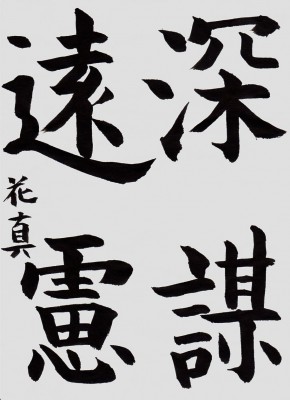 深謀
遠慮
花真